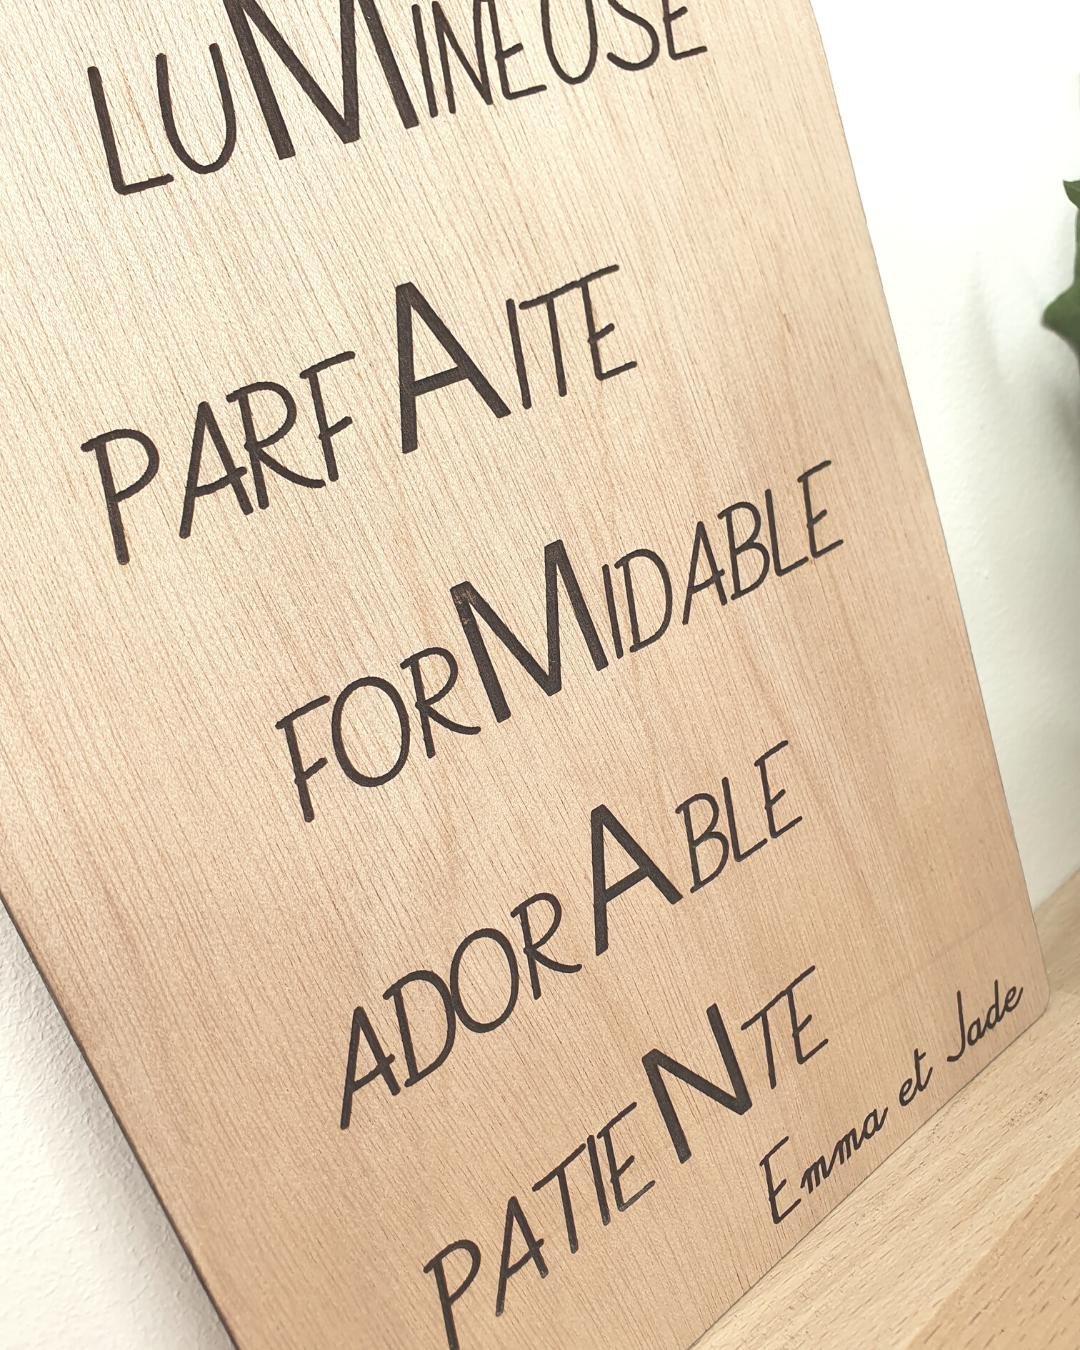 LUMINEUSE
PARFAITE
FORMIDABLE
ADORABLE
PATIENTE
Emma et Jade